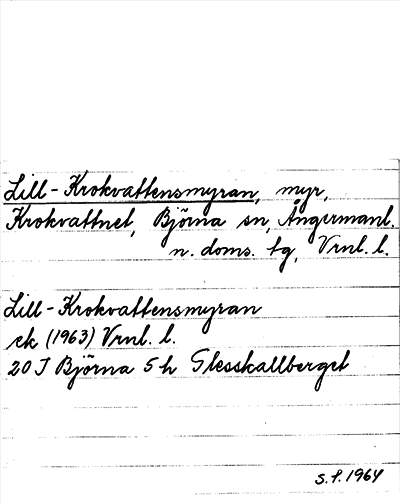 Lill-Krokvattensmyran, myr,
Krokvattnet, Björna sn, Ångermanl.
n. doms. tg, Vrnl. l.
Lill-Krokvattensmyran
ek (1963) Vrnl. l.
20 J Björna 5 h Glesskallberget
S.f. 1964